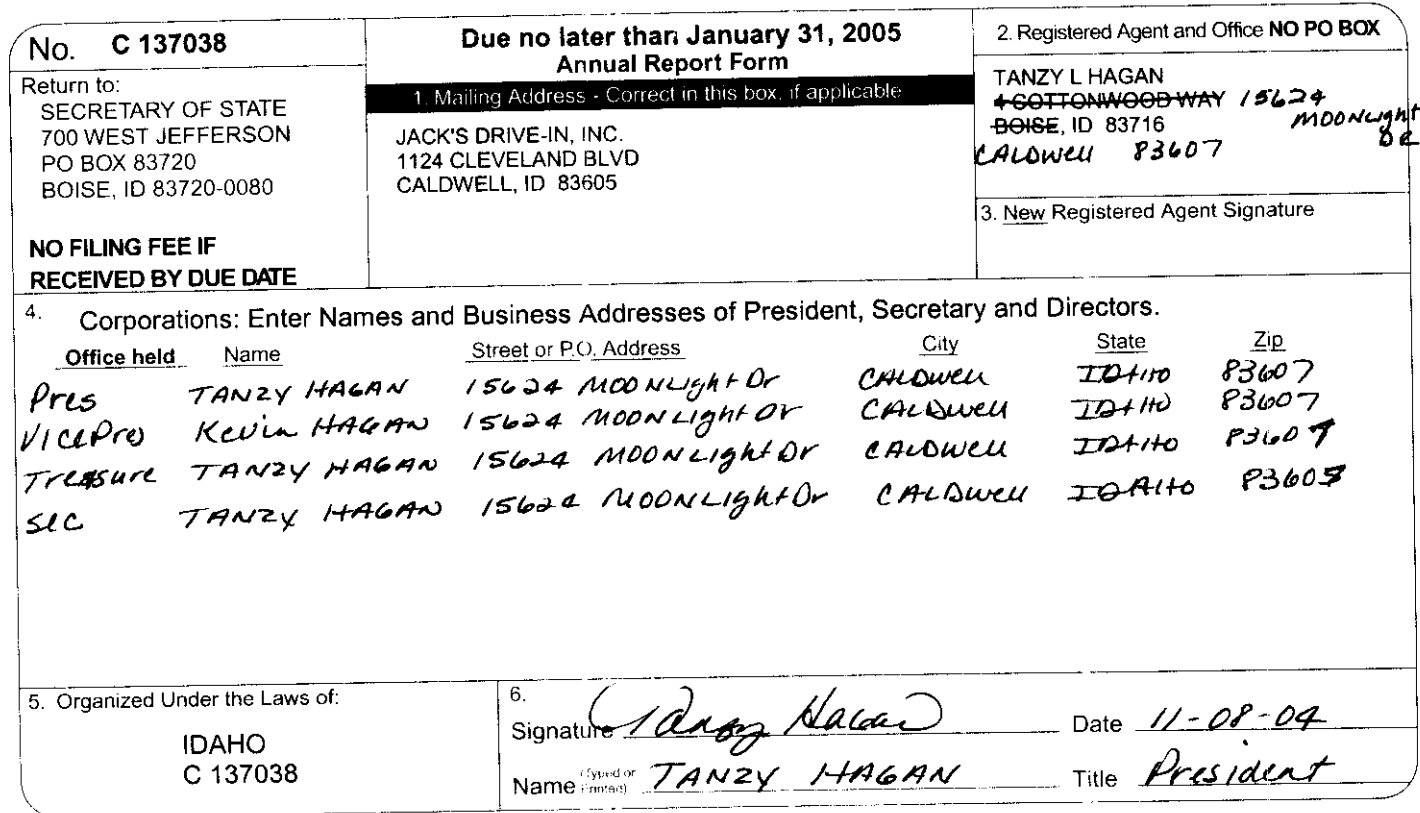 No. C 137038
Return to:
SECRETARY OF STATE
700 WEST JEFFERSON
PO BOX 83720
BOISE, ID 83720-0080
NO FILING FEE IF
RECEIVED BY DUE DATE
Due no later than January 31, 2005
Annual Report Form
1. Mailing Address - Correct in this box, if applicable
JACK'S DRIVE-IN, INC.
1124 CLEVELAND BLVD
CALDWELL, ID 83605
2. Registered Agent and Office NO PO BOX
TANZY L HAGAN
4 COTTONWOOD WAY 15624 MOONLight DR
BOISE, ID 83716
CALDWell 83607
3. New Registered Agent Signature
4. Corporations: Enter Names and Business Addresses of President, Secretary and Directors.
Office held Name Street or P.O. Address City State Zip
Pres TANZY HAGAN 15624 MOONLight Dr CALDWell IDAHO 83607
VicePres Kevin HAGAN 15624 MOONLight Dr CALDWell IDAHO 83607
Treasure TANZY HAGAN 15624 MOONLight Dr CALDWell IDAHO 83607
Sec TANZY HAGAN 15624 MOONLight Dr CALDWell IDAHO
5. Organized Under the Laws of:
IDAHO
C 137038
6.
Signature Tanzy Hagan Date 11-08-04
Name (Typed or Printed) TANZY HAGAN Title President